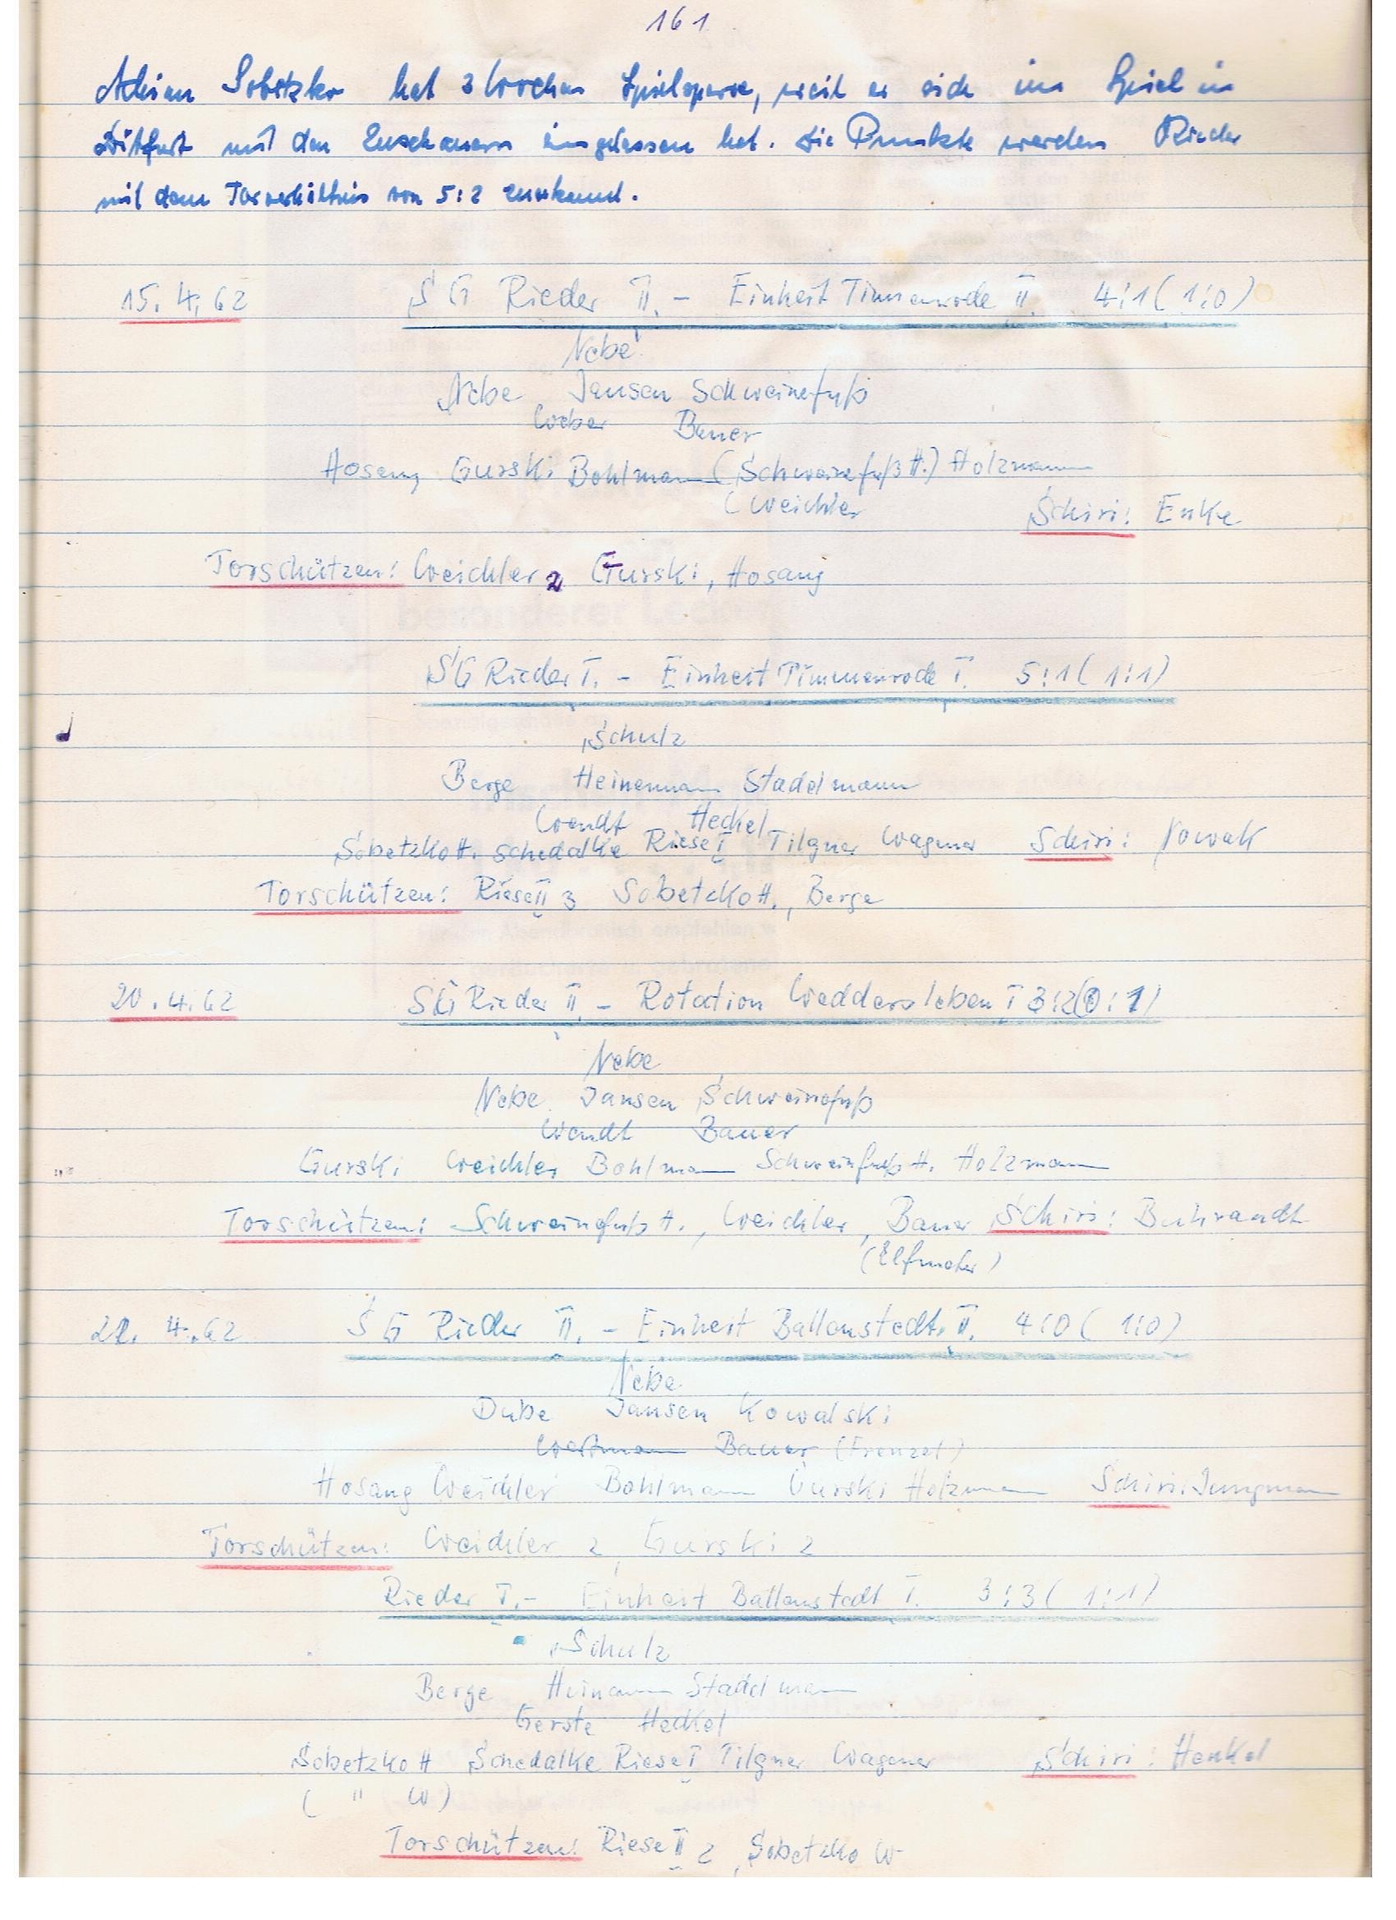 161
Adrian Sobetzko hat 3 Wochen Spielsperre, weil er sich im Spiel in
Ditfurt mit den Zuschauern eingelassen hat. Die Punkte werden Rieder
mit dem Torverhältnis von 5:2 zuerkannt.
15.4.62 SG Rieder II. - Einheit Timmenrode II. 4:1 (1:0)
Nebe
Nebe Jansen Schweinefuß
Weber Bauer
Hosang Gurski Bohlmann (Schweinefuß H.) Holzmann
(Weichler Schiri: Enke
Torschützen: Weichler 2 Gurski, Hosang
SG Rieder I. - Einheit Timmenrode I. 5:1 (1:1)
Schulz
Berge Heinemann Stadelmann
Wendt Heckel
Sobetzko H. Schedalke Riese I Tilgner Wagener Schiri: Nowak
Torschützen: Riese II 3 Sobetzko H., Berge
20.4.62 SG Rieder II. - Rotation Weddersleben I 3:2 (0:1)
Nebe
Nebe Jansen Schweinefuß
Wendt Bauer
Gurski Weichler Bohlmann Schweinfuß H. Holzmann
Torschützen: Schweinefuß H., Weichler, Bauer Schiri:
(Elfmeter)
22. 4.62 SG Rieder II. - Einheit Ballenstedt II. 4:0 (1:0)
Nebe
Dube Jansen Kowalski
Bauer (Frenzel)
Hosang Weichler Bohlmann Gurski Holzmann Schiri: Jungmann
Torschützen: Weichler 2, Gurski 2
Rieder I. - Einheit Ballenstedt I. 3:3 (1:1)
Schulz
Berge Heinemann Stadelmann
Gerste Heckel
Sobetzko H Schedalke Riese I Tilgner Wagener Schiri: Henkel
( " W)
Torschützen: Riese II 2, Sobetzko W